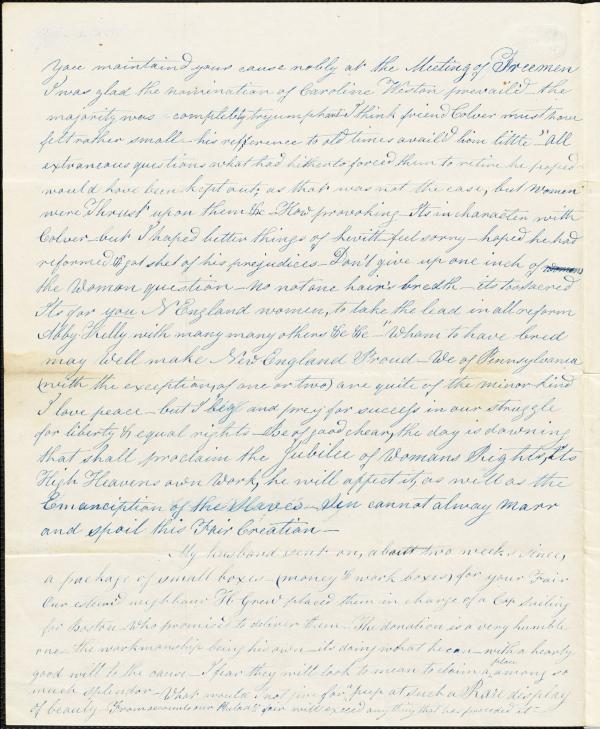 You maintaind your cause nobly at the Meeting of Freemen
I was glad the nomination of Caroline Weston prevaild the
majority was completely tryumphant I think friend Colver must have
felt rather small – his refference to old times availd him little "all
extraneous questions what had hitherto forced them to retire he hoped
would have been kept out; as that was not the case, but Women
were Thrust upon them &c – How provoking – Its in character with
Colver – but I hoped better things of – feel sorry – hoped he had
reformed & got shet of his prejudices – Don't give up one inch of
the Woman question – no not one hair's bredth – its to sacred
Its for you N England women, to take the lead in all reform
Abby Kelly with many many others &c &c – "Wham to have bred
may well make New England Proud – We of Pennsylvania
(with the exception, of one or two) are quite of the minor kind
I love peace – but I beg and prey for success in our struggle
for liberty & equal rights – be of good chear, the day is downing
that shall proclaim the Jubilee of Womans Rights, Its
High Heavens own Work, he will affect it, as well as the
Emanciption of the Slaves – Sin cannot alway Marr
and spoil this Fair Creation –
My husband sent on, about two weeks since,
a package of small boxes – (money & work boxes) for your Fair
Our esteemd neighbour H Grew placed them in charge of a Cap sailing
for Boston – who promised to deliver them – The donation is a very humble
one – the workmanship being his own – its doing what he can – with a hearty
good will to the cause – I fear they will look to mean to claim a place among so
much splendor – What would I not give for a peep at such a Rare display
of beauty – From accounts our Philad fair will exceed any thing that has preceded it –